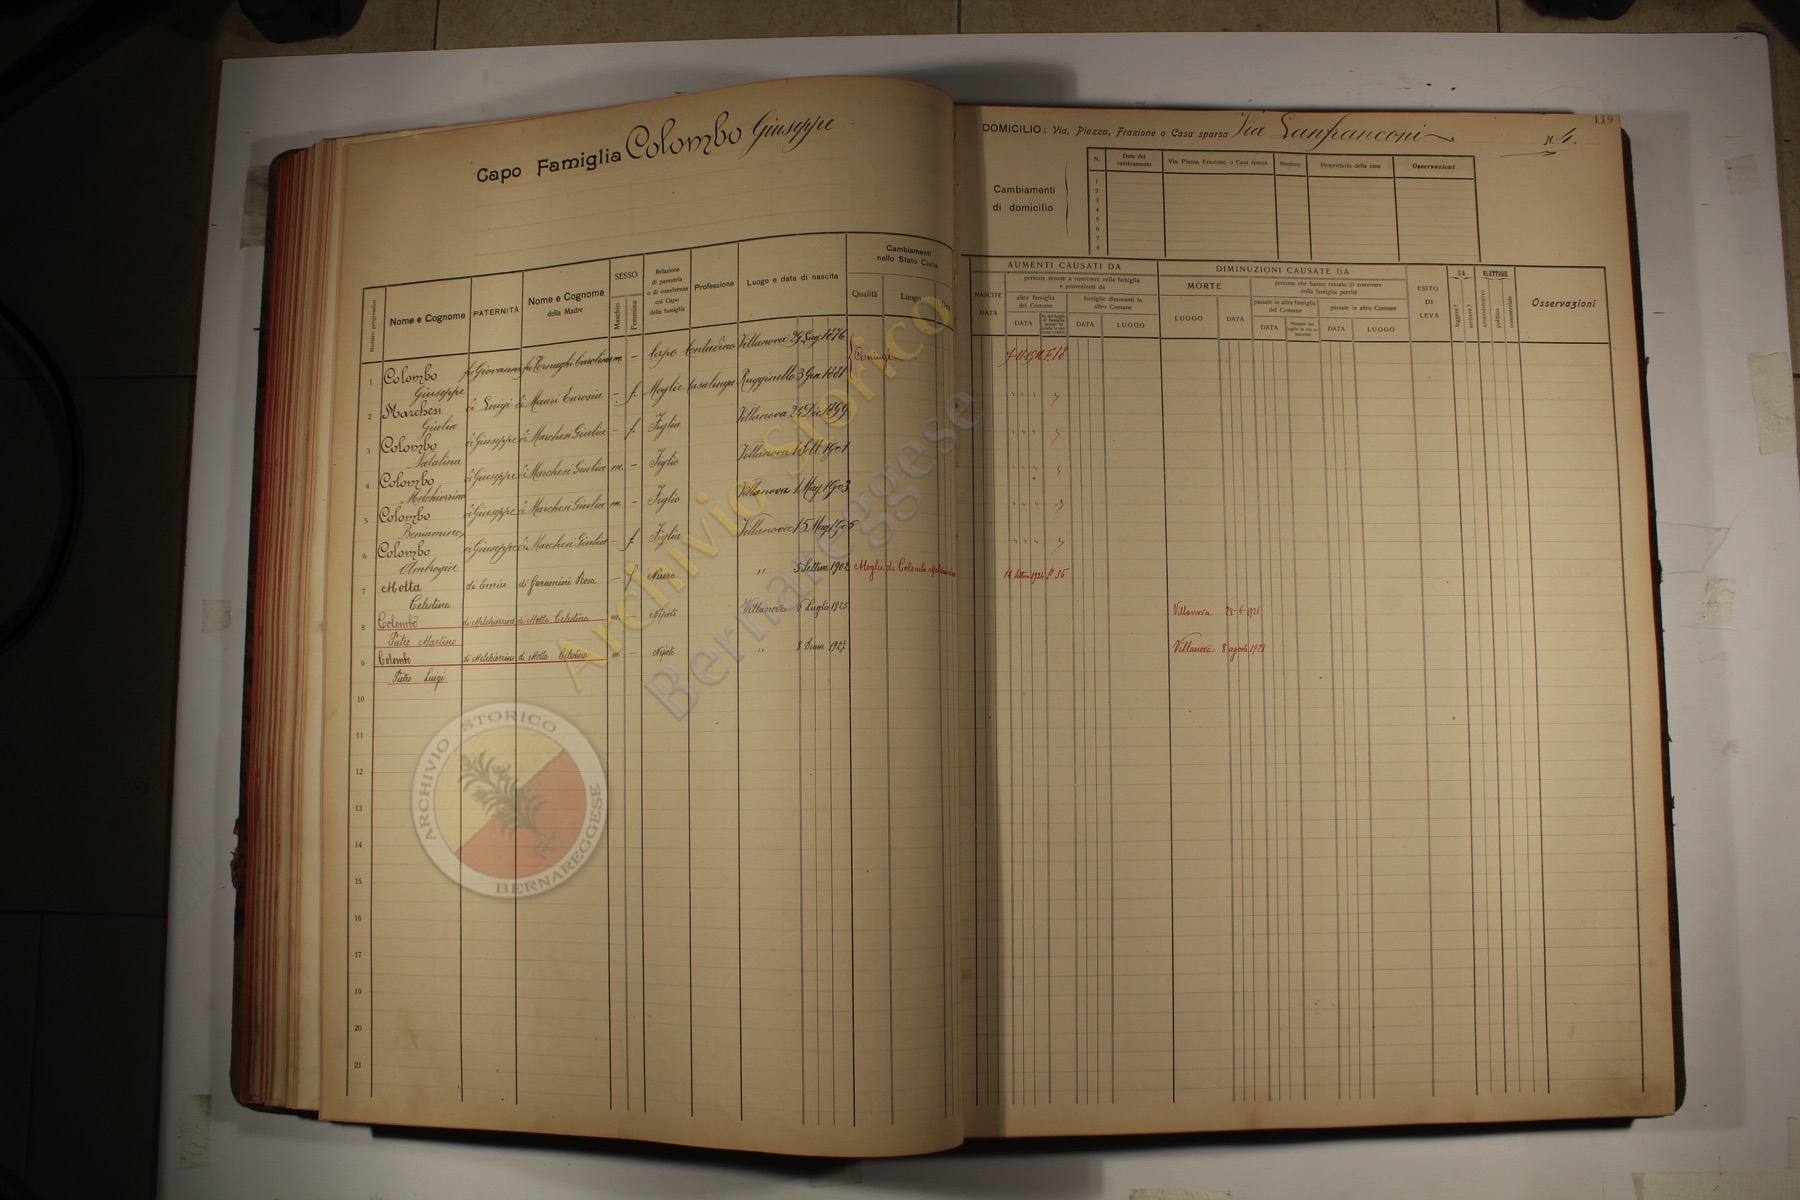 Capo Famiglia Colombo Giuseppe
119
DOMICILIO: Via, Piazza, Frazione o Casa sparsa Via Lanfranconi N. 4.
Cambiamenti
di domicilio
N. Data del cambiamento Via, Piazza, Frazione, o Casa sparsa Numero Proprietario della casa Osservazioni
1
2
3
4
5
6
7
8
Numero progressivo
Nome e Cognome
PATERNITÀ
Nome e Cognome
della Madre
SESSO
Maschio
Femmina
Relazione
di parentela
o di convivenza
col Capo
della famiglia
Professione
Luogo e data di nascita
Cambiamenti
nello Stato Civile
Qualità
Luogo
AUMENTI CAUSATI DA
NASCITE
DATA
persone venute a convivere nella famiglia
e provenienti da
altra famiglia
del Comune
DATA
famiglie dimoranti in
altro Comune
DATA
LUOGO
DIMINUZIONI CAUSATE DA
MORTE
LUOGO
DATA
persone che hanno cessato di convivere
colla famiglia perchè
passate in altra famiglia
del Comune
DATA
passate in altro Comune
DATA
LUOGO
ESITO
DI
LEVA
SA
leggere?
scrivere?
ELETTORE
amministrativo
politico
commerciale
Osservazioni
1 Colombo fu Giovanni fu Tornaghi Carolina m. – Capo Contadino Villanova 1876 Coniugi
Giuseppe
2 Marchesi di Luigi di Mauri Eurosia – f. Moglie Casalinga Rugginello 3 Gen. 1881
Giulia
3 Colombo di Giuseppe di Marchesi Giulia – f. Figlia Villanova 24 Dic. 1899
Natalina
4 Colombo di Giuseppe di Marchesi Giulia m. – Figlio Villanova 1 Sett. 1901
Melchiorrino
5 Colombo di Giuseppe di Marchesi Giulia m. – Figlio Villanova 1 Mag. 1903
Beniamino
6 Colombo di Giuseppe di Marchesi Giulia – f. Figlia Villanova 15
Ambrogia
7 Motta di di Rosa – f Nuora " 5 Settem. 1902 Moglie di Colombo
Celestina
8 Colombo di Melchiorrino di Motta Celestina m. – Nipote Villanova 6 Luglio 1925 Villanova 28-6-1926
Pietro Martino
9 Colombo di Melchiorrino di Motta Celestina m – Nipote " 8 Dicem. 1927 Villanova 8 agosto 1928
Pietro Luigi
10
11
12
13
14
15
16
17
18
19
20
21
Archivio Storico
Bernareggese
ARCHIVIO STORICO
BERNAREGGESE